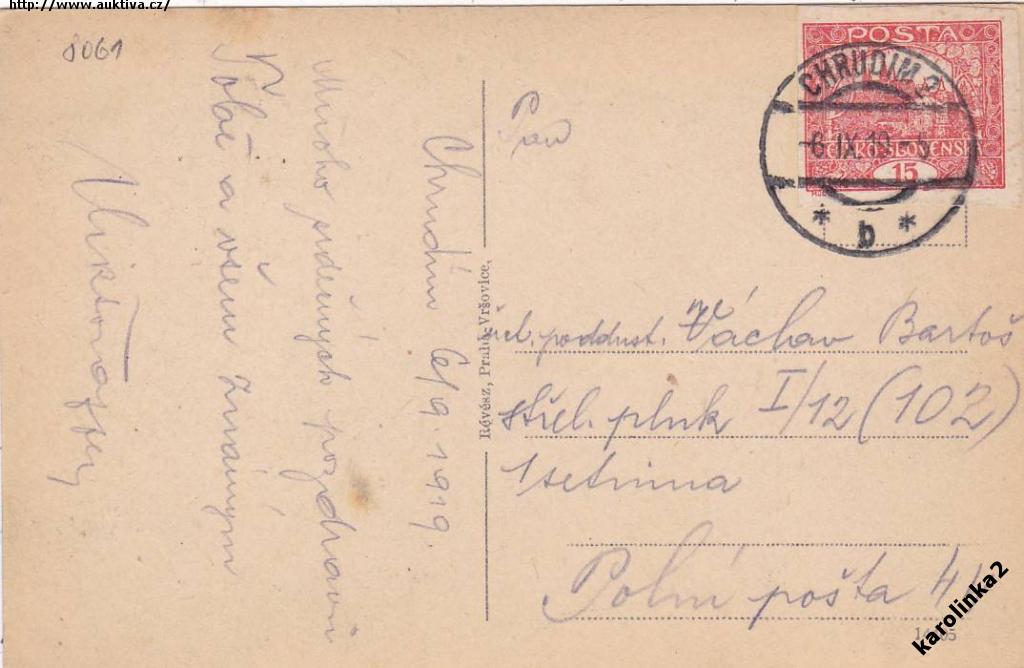 http://www.auktiva.cz/
8061
Chrudim 6/9. 1919.
Mnoho srdečných pozdravů
Tobě a všem známým
Révész, Praha-Vršovice,
POSTA
ČESKO-SLOVENSK
15
CHRUDIM 2
-6.IX.19.-
* b *
Pan
poddůst. Václav Bartoš
střel. pluk I/12 (102)
1 setnina
Polní pošta
karolinka2